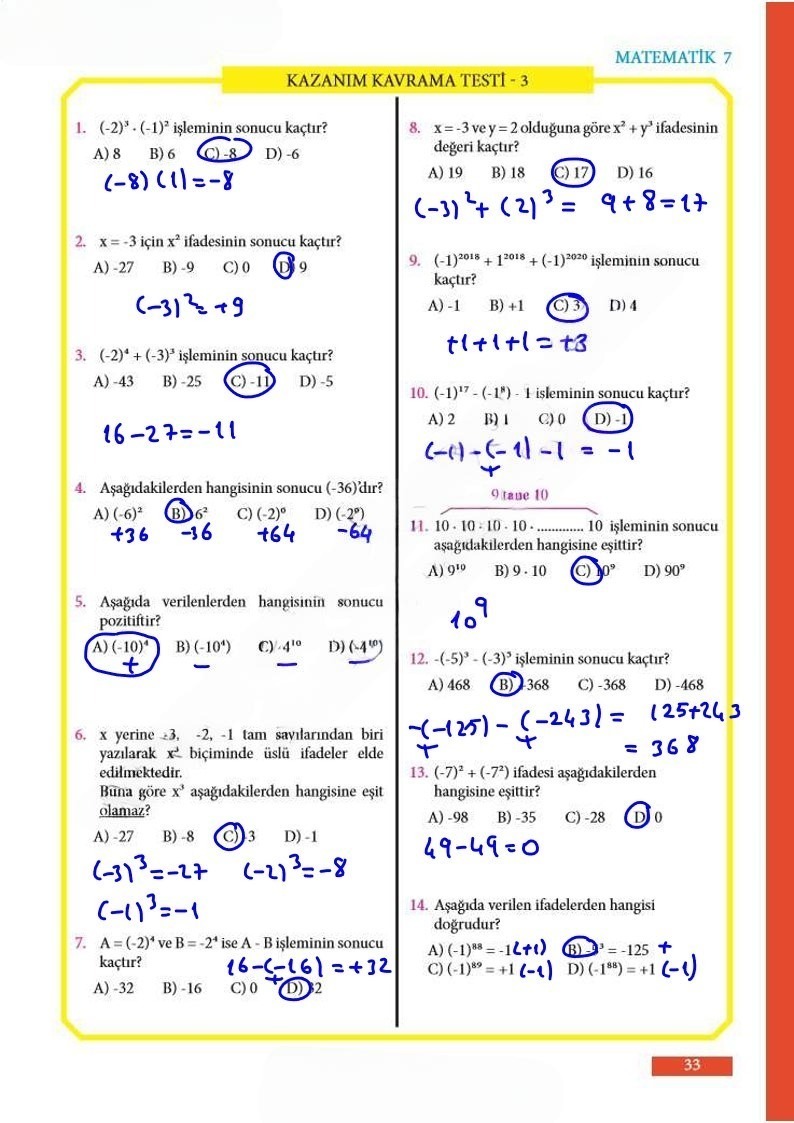 MATEMATİK 7
KAZANIM KAVRAMA TESTİ - 3
1. (-2)³ · (-1)² işleminin sonucu kaçtır?
A) 8 B) 6 C) -8 D) -6
(-8) (1) = -8
2. x = -3 için x² ifadesinin sonucu kaçtır?
A) -27 B) -9 C) 0 D) 9
(-3)² = +9
3. (-2)⁴ + (-3)³ işleminin sonucu kaçtır?
A) -43 B) -25 C) -11 D) -5
16-27=-11
4. Aşağıdakilerden hangisinin sonucu (-36)'dır?
A) (-6)² B) 6² C) (-2)⁶ D) (-2⁶)
+36 -36 +64 -64
5. Aşağıda verilenlerden hangisinin sonucu
pozitiftir?
A) (-10)⁴ B) (-10⁴) C) -4¹⁰ D) (-4¹⁰)
+ - - -
6. x yerine -3, -2, -1 tam sayılarından biri
yazılarak x³ biçiminde üslü ifadeler elde
edilmektedir.
Buna göre x³ aşağıdakilerden hangisine eşit
olamaz?
A) -27 B) -8 C) -3 D) -1
(-3)³=-27 (-2)³=-8
(-1)³=-1
7. A = (-2)⁴ ve B = -2⁴ ise A - B işleminin sonucu
kaçtır?
16-(-16) = +32
+
A) -32 B) -16 C) 0 D) 32
8. x = -3 ve y = 2 olduğuna göre x² + y³ ifadesinin
değeri kaçtır?
A) 19 B) 18 C) 17 D) 16
(-3)² + (2)³ = 9+8=17
9. (-1)²⁰¹⁸ + 1²⁰¹⁸ + (-1)²⁰²⁰ işleminin sonucu
kaçtır?
A) -1 B) +1 C) 3 D) 4
+1+1+1 = +3
10. (-1)¹⁷ - (-1⁸) - 1 işleminin sonucu kaçtır?
A) 2 B) 1 C) 0 D) -1
(-1)-(-1)-1 = -1
+
9 tane 10
11. 10 · 10 · 10 · 10 · ............. 10 işleminin sonucu
aşağıdakilerden hangisine eşittir?
A) 9¹⁰ B) 9 · 10 C) 10⁹ D) 90⁹
10⁹
12. -(-5)³ - (-3)⁵ işleminin sonucu kaçtır?
A) 468 B) 368 C) -368 D) -468
-(-125) - (-243) = 125+243
+ +
= 368
13. (-7)² + (-7²) ifadesi aşağıdakilerden
hangisine eşittir?
A) -98 B) -35 C) -28 D) 0
49-49=0
14. Aşağıda verilen ifadelerden hangisi
doğrudur?
A) (-1)⁸⁸ = -1 (+1) B) -5³ = -125 +
C) (-1)⁸⁹ = +1 (-1) D) (-1⁸⁸) = +1 (-1)
33